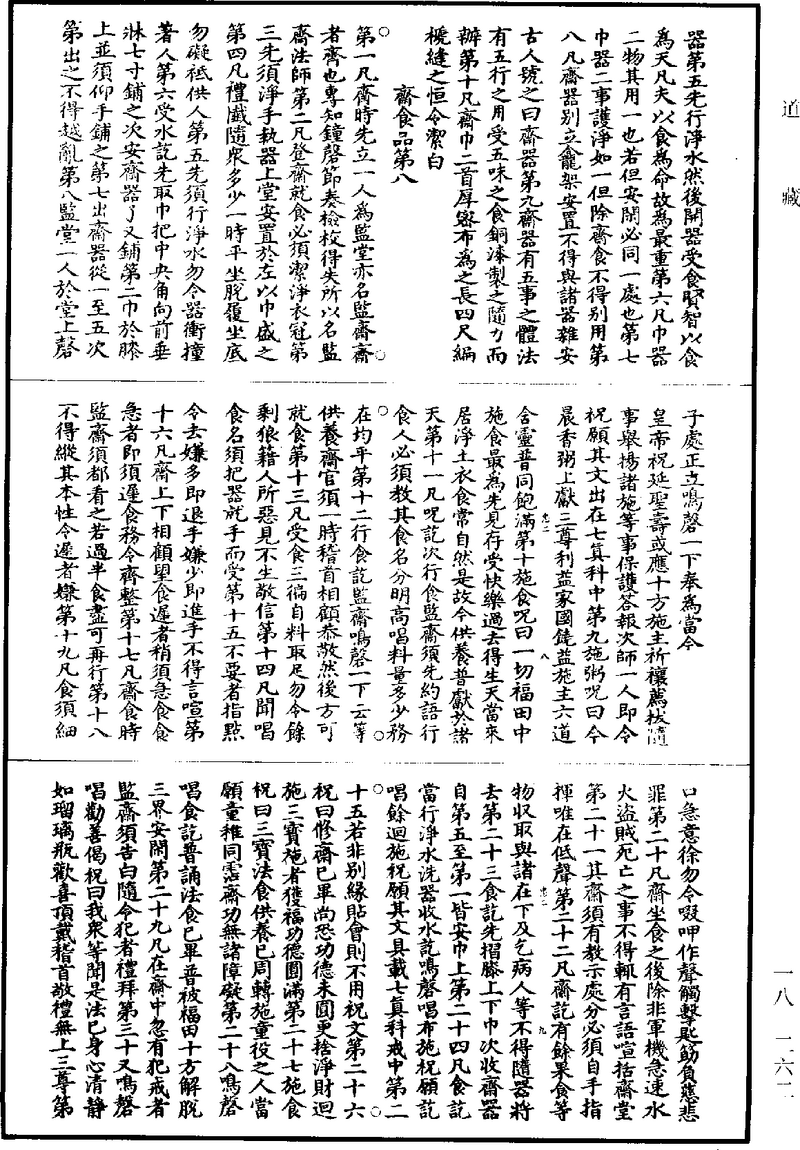 道藏
器第五先行淨水然後開器受食賢智以食
為天凡夫以食為命故為最重第六凡巾器
二物其用一也若但安閑必同一處也第七
巾器二事護淨如一但除齋食不得別用第
八凡齋器別立龕架安置不得與諸器雜安
古人號之曰齋器第九齋器有五事之體法
有五行之用受五味之食銅漆製之隨力而
辦第十凡齋巾二首厚密布為之長四尺緶
縫之恒令潔白
齋食品第八
第一凡齋時先立一人為監堂亦名監齋齋
者齊也專知鐘磬節奏檢校得失所以名監
齋法師第二凡登齋就食必須潔淨衣冠第
三先須淨手執器上堂安置於左以巾盛之
第四凡禮懺隨衆多少一時平坐脫履坐底
勿礙祗供人第五先須行淨水勿令器衝撞
著人第六受水訖先取巾把中央角向前垂
淋七寸鋪之次安齋器了又鋪第二巾於膝
上並須仰手鋪之第七出齋器從一至五次
第出之不得越亂第八監堂一人於堂上磬
子處正立鳴磬一下奉為當今
皇帝祝延聖壽或應十方施主祈禳薦拔隨
事舉揚諸施等事保護答報次師一人即令
祝願其文出在七真科中第九施粥呪曰今
晨香粥上獻三尊利益家國饒益施主六道
含靈普同飽滿第十施食呪曰一切福田中
施食最為先見存受快樂過去得生天當來
居淨土衣食常自然是故今供養普獻於諸
天第十一凡呪訖次行食監齋須先約語行
食人必須教其食名分明高唱料量多少務
在均平第十二行食訖監齋鳴磬一下云等
供養齋官須一時稽首相顧恭敬然後方可
就食第十三凡受食三徧自料取足勿令餘
剩狼籍人所惡見不生敬信第十四凡聞唱
食名須把器就手而受第十五不要者指點
令去嫌多即退手嫌少即進手不得言喧第
十六凡齋上下相顧望食遲者稍須急食食
急者即須遲食務令齊整第十七凡齋食時
監齋須都看之若過半食盡可再行第十八
不得縱其本性令遲者嫌第十九凡食須細
口急意徐勿令啜呷作聲觸擊匙筯負慈悲
罪第二十凡齋坐食之後除非軍機急速水
火盜賊死亡之事不得輒有言語喧括齋堂
第二十一其齋須有教示處分必須自手指
揮唯在低聲第二十二凡齋訖有餘果食等
物收取與諸在下及乞病人等不得隨器將
去第二十三食訖先摺膝上下巾次收齋器
自第五至第一皆安巾上第二十四凡食訖
當行淨水洗器收水訖鳴磬唱布施祝願訖
唱餘迴施祝願其文具載七真科戒中第二
十五若非別緣貼會則不用祝文第二十六
祝曰修齋已畢尚恐功德未圓更捨淨財迴
施三寶施者獲福功德圓滿第二十七施食
祝曰三寶法食供養已周轉施童役之人當
願童稚同霑齋功無諸障礙第二十八鳴磬
唱食訖普誦法食已畢普被福田十方解脫
三界安閑第二十九凡在齋中忽有犯戒者
監齋須告白隨令犯者禮拜第三十又鳴磬
唱勸善偈祝曰我衆等聞是法已身心清靜
如瑠璃瓶歡喜頂戴稽首敬禮無上三尊第
一八
二六二